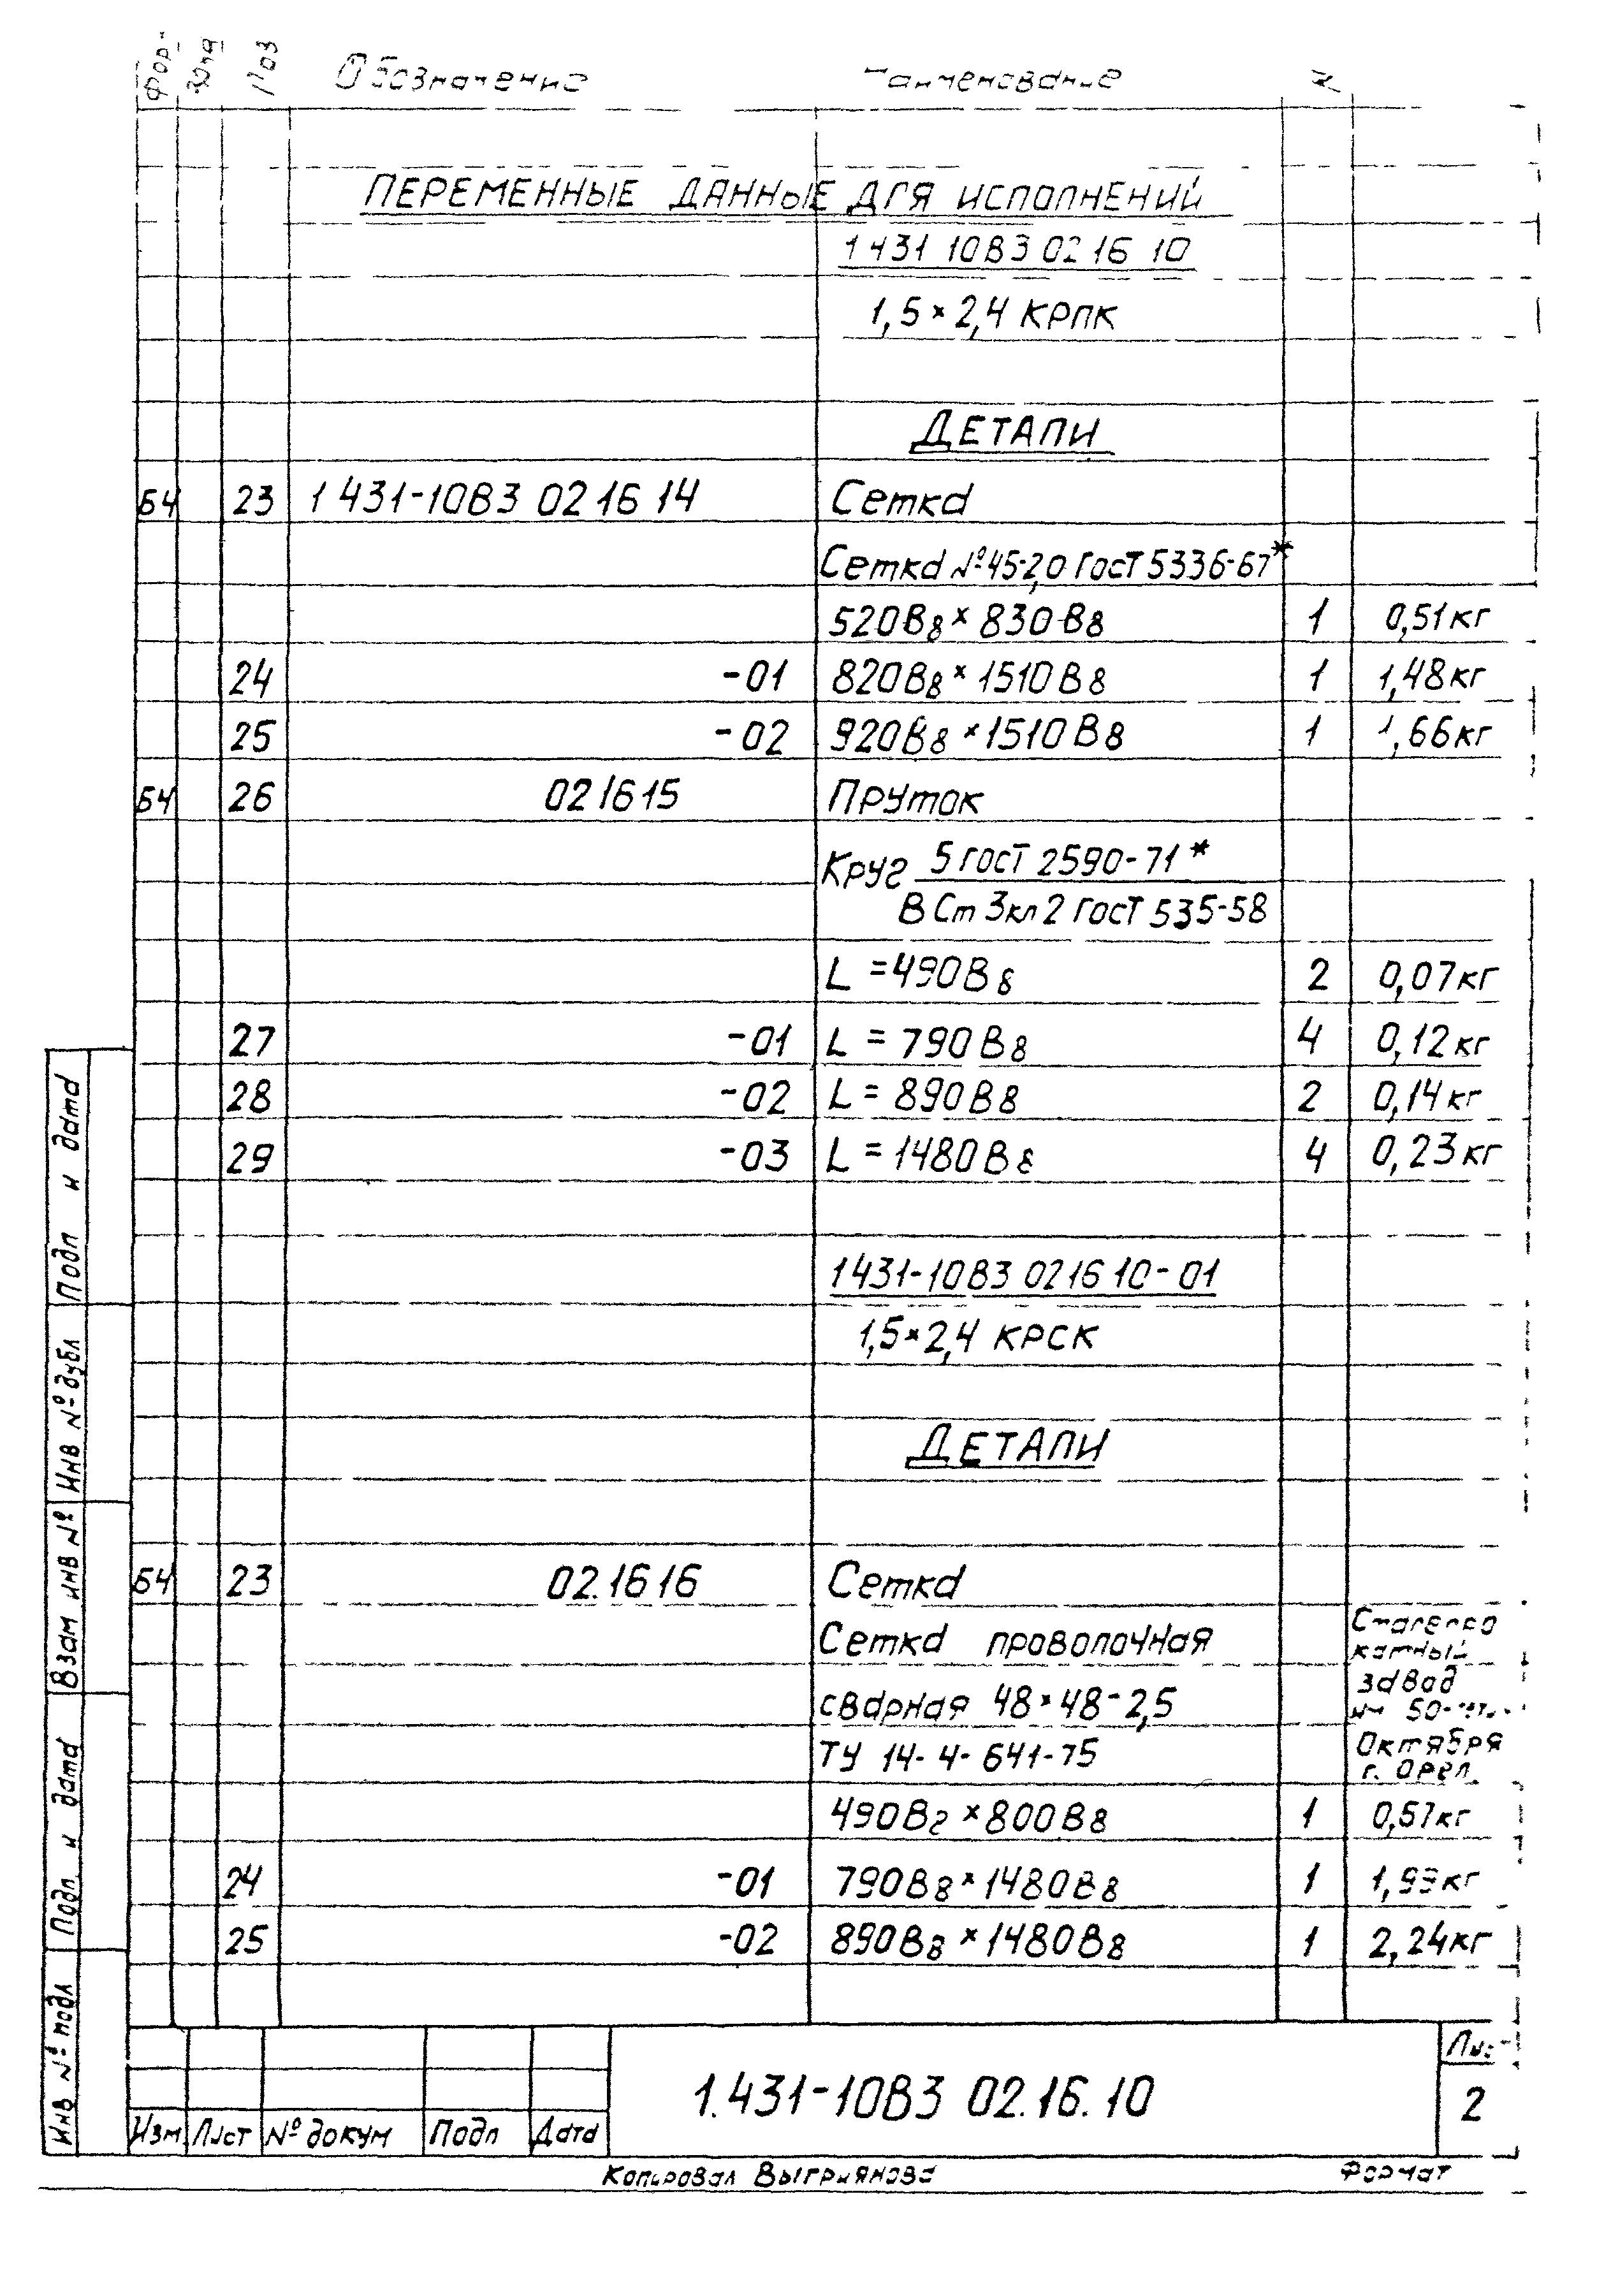 Обозначение
ПЕРЕМЕННЫЕ ДАННЫЕ ДЛЯ ИСПОЛНЕНИЙ
1 431 10В3 02 16 10
1,5×2,4 КРПК
ДЕТАЛИ
БЧ 23 1 431-10В3 02 16 14 Сетка
Сетка №45-2,0 ГОСТ 5336-67*
520В8×830В8 1 0,51кг
24 -01 820В8×1510В8 1 1,48кг
25 -02 920В8×1510В8 1 1,66кг
БЧ 26 02 16 15 Пруток
Круг 5 ГОСТ 2590-71*
В Ст 3кп2 ГОСТ 535-58
L=490В8 2 0,07кг
27 -01 L=790В8 4 0,12кг
28 -02 L=890В8 2 0,14кг
29 -03 L=1480В8 4 0,23кг
1 431-10В3 02 16 10-01
1,5×2,4 КРСК
ДЕТАЛИ
БЧ 23 02.16 16 Сетка
Сетка проволочная
сварная 48×48-2,5
ТУ 14-4-641-75
катный
завод
50-
Октября
г. Орел
490В8×800В8 1 0,57кг
24 -01 790В8×1480В8 1
25 -02 890В8×1480В8 1 2,24кг
Подп и дата
Инв № дубл
Взам инв №
Подп. и дата
Инв № подл
Изм. Лист № докум Подп Дата
1.431-10В3 02.16.10
Лис
2
Копировал
Формат